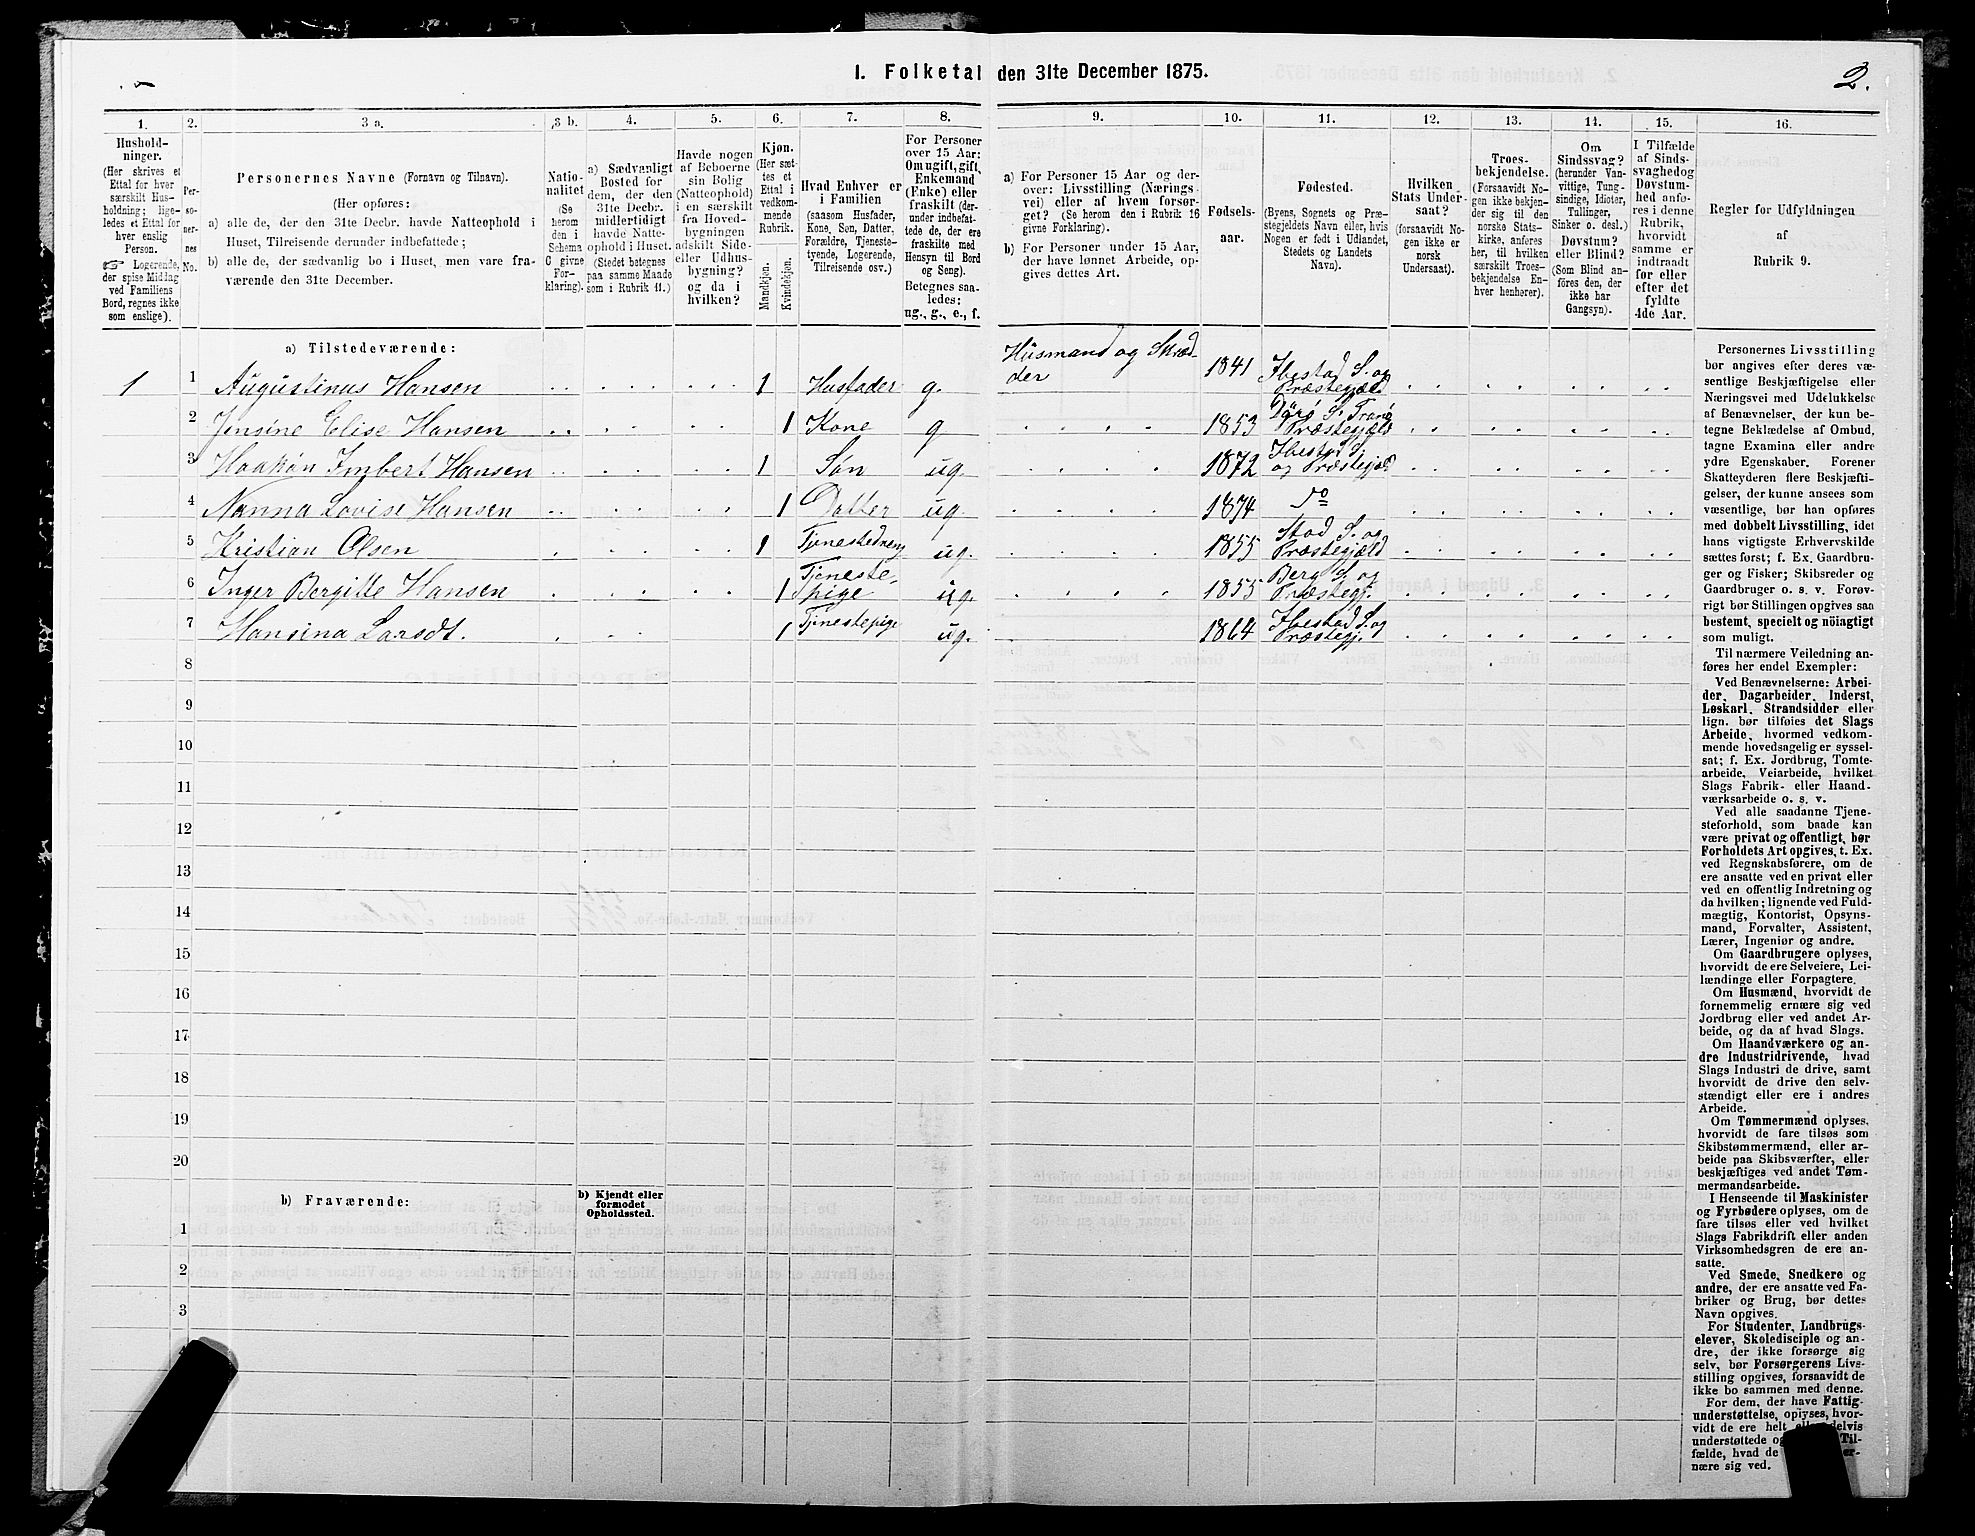 1. Folketal den 31te December 1875.
2.
1.
Husholdninger.
(Her skrives et
Ettal for hver
særskilt Husholdning;
ligeledes et Ettal for
hver enslig
Person.
Logerende,
der spise Middag
ved Familiens
Bord, regnes ikke
som enslige).
2.
Personernes
No.
3 a.
Personernes Navne (Fornavn og Tilnavn).
(Her opføres:
a) alle de, der den 31te Decbr. havde Natteophold i
Huset, Tilreisende derunder indbefattede;
b) alle de, der sædvanlig bo i Huset, men vare fraværende
den 31te December.
3 b.
Nationalitet
(Se
herom
den i
Schema
C givne
Forklaring).
4.
a) Sædvanligt
Bosted for
dem, der den
31te Decbr.
midlertidigt
havde Natteophold
i Huset.
(Stedet betegnes
paa samme Maade
som i Rubrik 11.)
5.
Havde nogen
af Beboerne
sin Bolig
(Natteophold)
i en særskilt
fra Hovedbygningen
adskilt Side-
eller Udhusbygning?
og da i
hvilken?
6.
Kjøn.
(Her sættes
et
Ettal i
vedkommende
Rubrik.
Mandkjøn.
Kvindekjøn.
7.
Hvad Enhver er
i Familien
(saasom Husfader,
Kone, Søn, Datter,
Forældre, Tjenestetyende,
Logerende,
Tilreisende osv.)
8.
For Personer
over 15 Aar:
Om ugift, gift,
Enkemand
(Enke) eller
fraskilt (derunder
indbefattede
de, der ere
fraskilte med
Hensyn til Bord
og Seng).
Betegnes saaledes:
ug., g., e., f.
9.
a) For Personer 15 Aar og derover:
Livsstilling (Næringsvei)
eller af hvem forsørget?
(Se herom den i Rubrik 16
givne Forklaring).
b) For Personer under 15 Aar,
der have lønnet Arbeide, opgives
dettes Art.
10.
Fødselsaar.
11.
Fødested.
(Byens, Sognets og Præstegjeldets
Navn eller, hvis
Nogen er født i Udlandet,
Stedets og Landets
Navn).
12.
Hvilken
Stats Undersaat?
(forsaavidt Nogen
ikke er
norsk
Undersaat).
13.
Troesbekjendelse.
(Forsaavidt Nogen
ikke bekjender
sig til den
norske Statskirke,
anføres
her, til hvilken
særskilt Troesbekjendelse
Enhver
henhører).
14.
Om
Sindssvag?
(herunder Vanvittige,
Tungsindige,
Idioter,
Tullinger,
Sinker o. desl.)
Døvstum?
eller Blind?
(Som Blind anføres
den, der
ikke har
Gangsyn).
15.
I Tilfælde
af Sindssvaghed
og
Døvstumhed
anføres
i denne
Rubrik,
hvorvidt
samme er
indtraadt
før eller
efter det
fyldte
4de Aar.
16.
Regler for Udfyldningen
af
Rubrik 9.
a) Tilstedeværende:
1 1 Augustinus Hansen 1 Husfader g. Husmand og Skrædder 1841 Ibestad S. og Præstegjæld
2 Jensine Elise Hansen 1 Kone g 1853 Dyrø S. Tranø Præstegjæld
3 Haakon Imbert Hansen 1 Søn ug. 1872 Ibestad S. og Præstegjæld
4 Nanna Lovise Hansen 1 Datter ug. 1874 Do
5 Kristian Olsen 1 Tjenestedreng ug. 1855 Stod S. og Præstegjæld
6 Inger Bergitte Hansen 1 Tjenestepige ug. 1855 Berg S. og Præstegj.
7 Hansina Larsdt. 1 Tjenestepige ug. 1864 Ibestad S. og Præstegj.
8
9
10
11
12
13
14
15
16
17
18
19
20
b) Fraværende:
b) Kjendt eller
formodet
Opholdssted.
1
2
3
Personernes Livsstilling
bør angives efter deres væsentlige
Beskjæftigelse eller
Næringsvei med Udelukkelse
af Benævnelser, der kun betegne
Beklædelse af Ombud,
tagne Examina eller andre
ydre Egenskaber. Forener
Skatteyderen flere Beskjæftigelser,
der kunne ansees som
væsentlige, bør han opføres
med dobbelt Livsstilling, idet
hans vigtigste Erhvervskilde
sættes først; f. Ex. Gaardbruger
og Fisker; Skibsreder og
Gaardbruger o. s. v. Forøvrigt
bør Stillingen opgives saa
bestemt, specielt og nöiagtigt
som muligt.
Til nærmere Veiledning anføres
her endel Exempler:
Ved Benævnelserne: Arbeider,
Dagarbeider, Inderst,
Løskarl, Strandsidder eller
lign. bør tilføies det Slags
Arbeide, hvormed vedkommende
hovedsagelig er sysselsat;
f. Ex. Jordbrug, Tomtearbeide,
Veiarbeide, hvilket
Slags Fabrik- eller Haandværksarbeide
o. s. v.
Ved alle saadanne Tjenesteforhold,
som baade kan
være privat og offentligt, bør
Forholdets Art opgives, t. Ex.
ved Regnskabsførere, om de
ere ansatte ved en privat eller
ved en offentlig Indretning og
da hvilken; lignende ved Fuldmægtig,
Kontorist, Opsynsmand,
Forvalter, Assistent,
Lærer, Ingeniør og andre.
Om Gaardbrugere oplyses,
hvorvidt de ere Selveiere, Leilændinge
eller Forpagtere.
Om Husmænd, hvorvidt de
fornemmelig ernære sig ved
Jordbrug eller ved andet Arbeide,
og da af hvad Slags.
Om Haandværkere og andre
Industridrivende, hvad
Slags Industri de drive, samt
hvorvidt de drive den selvstændigt
eller ere i andres
Arbeide.
Om Tømmermænd oplyses,
hvorvidt de fare tilsøs som
Skibstømmermænd, eller arbeide
paa Skibsværfter, eller
beskjæftiges ved andet Tømmermandsarbeide.
I Henseende til Maskinister
og Fyrbødere oplyses, om de
fare tilsøs eller ved hvilket
Slags Fabrikdrift eller anden
Virksomhedsgren de ere ansatte.
Ved Smede, Snedkere og
andre, der ere ansatte ved Fabriker
og Brug, bør dettes
Navn opgives.
For Studenter, Landbrugselever,
Skoledisciple og andre,
der ikke forsørge sig
selv, bør Forsørgerens Livsstilling
opgives, forsaavidt de
ikke bo sammen med denne.
For dem, der have Fattigunderstøttelse,
oplyses, hvorvidt
de ere helt delvis
understøttede
fælde, hvad de
nære sig ved.